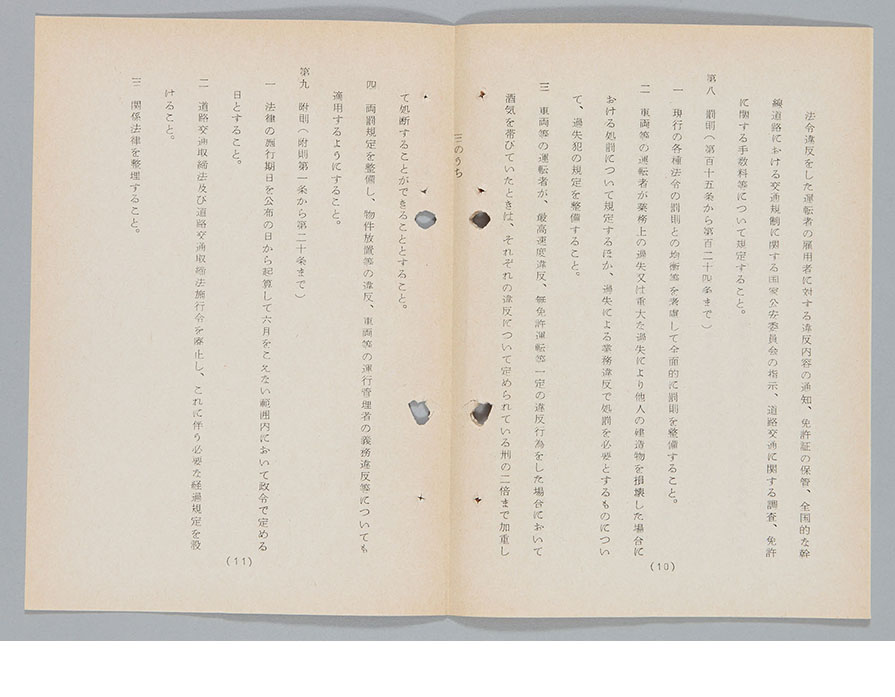 法令違反をした運転者の雇用者に対する違反内容の通知、免許証の保管、全国的な幹
線道路における交通規制に関する国家公安委員会の指示、道路交通に関する調査、免許
に関する手数料等について規定すること。
第八 罰則(第百十五条から第百二十四条まで)
一 現行の各種法令の罰則との均衡等を考慮して全面的に罰則を整備すること。
二 車両等の運転者が業務上の過失又は重大な過失により他人の建造物を損壊した場合に
おける処罰について規定するほか、過失による義務違反で処罰を必要とするものについ
て、過失犯の規定を整備すること。
三 車両等の運転者が、最高速度違反、無免許運転等一定の違反行為をした場合において
酒気を帯びていたときは、それぞれの違反について定められている刑の二倍まで加重し
(10)
三のうち
て処断することができることとすること。
四 両罰規定を整備し、物件放置等の違反、車両等の運行管理者の義務違反等についても
適用するようにすること。
第九 附則(附則第一条から第二十条まで)
一 法律の施行期日を公布の日から起算して六月をこえない範囲内において政令で定める
日とすること。
二 道路交通取締法及び道路交通取締法施行令を廃止し、これに伴う必要な経過規定を設
けること。
三 関係法律を整理すること。
(11)